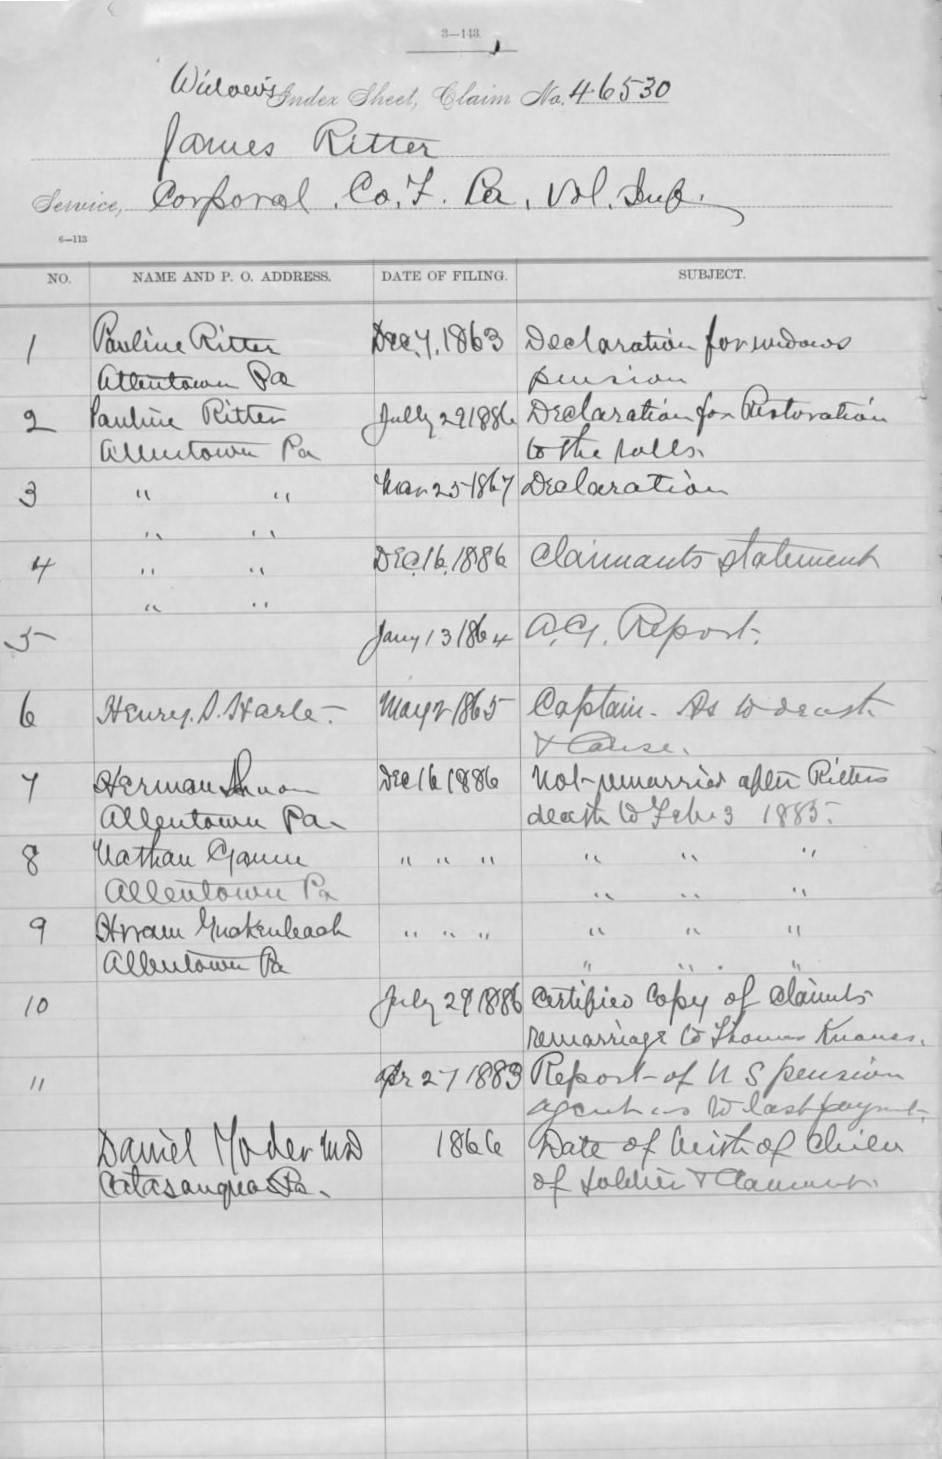 3—143.
Widow's Index Sheet, Claim No. 46530
James Ritter
Service, Corporal Co. F. Pa. Vol. Inf.
6—113
NO. NAME AND P. O. ADDRESS. DATE OF FILING. SUBJECT.
1 Pauline Ritter Dec. 7, 1863 Declaration for widows
Allentown Pa pension
2 Pauline Ritter July 29 1886 Declaration for Restoration
Allentown Pa to the rolls.
3 " " Mar 25 1867 Declaration
" "
4 " " Dec. 16, 1886 Claimants statement
" "
5 Jany 13 1864 A.G. Report.
6 Henry. S. Harte - May 2 1865 Captain - As to death
& Cause.
7 Herman Dec 16 1886 Not remarried after Ritters
Allentown Pa. death to Feb. 3 1883.
8 Nathan " " " " " "
Allentown Pa " " "
9 Hiram " " " " " "
Allentown Pa " " "
10 July 29 1886 Certified Copy of Claimts
remarriage to Thomas
11 Apr 27 1883 Report of U S pension
agent as to last paymt.
Daniel Yoder MD 1866 Date of birth of Child
Catasauqua Pa. of soldier & Claimant.